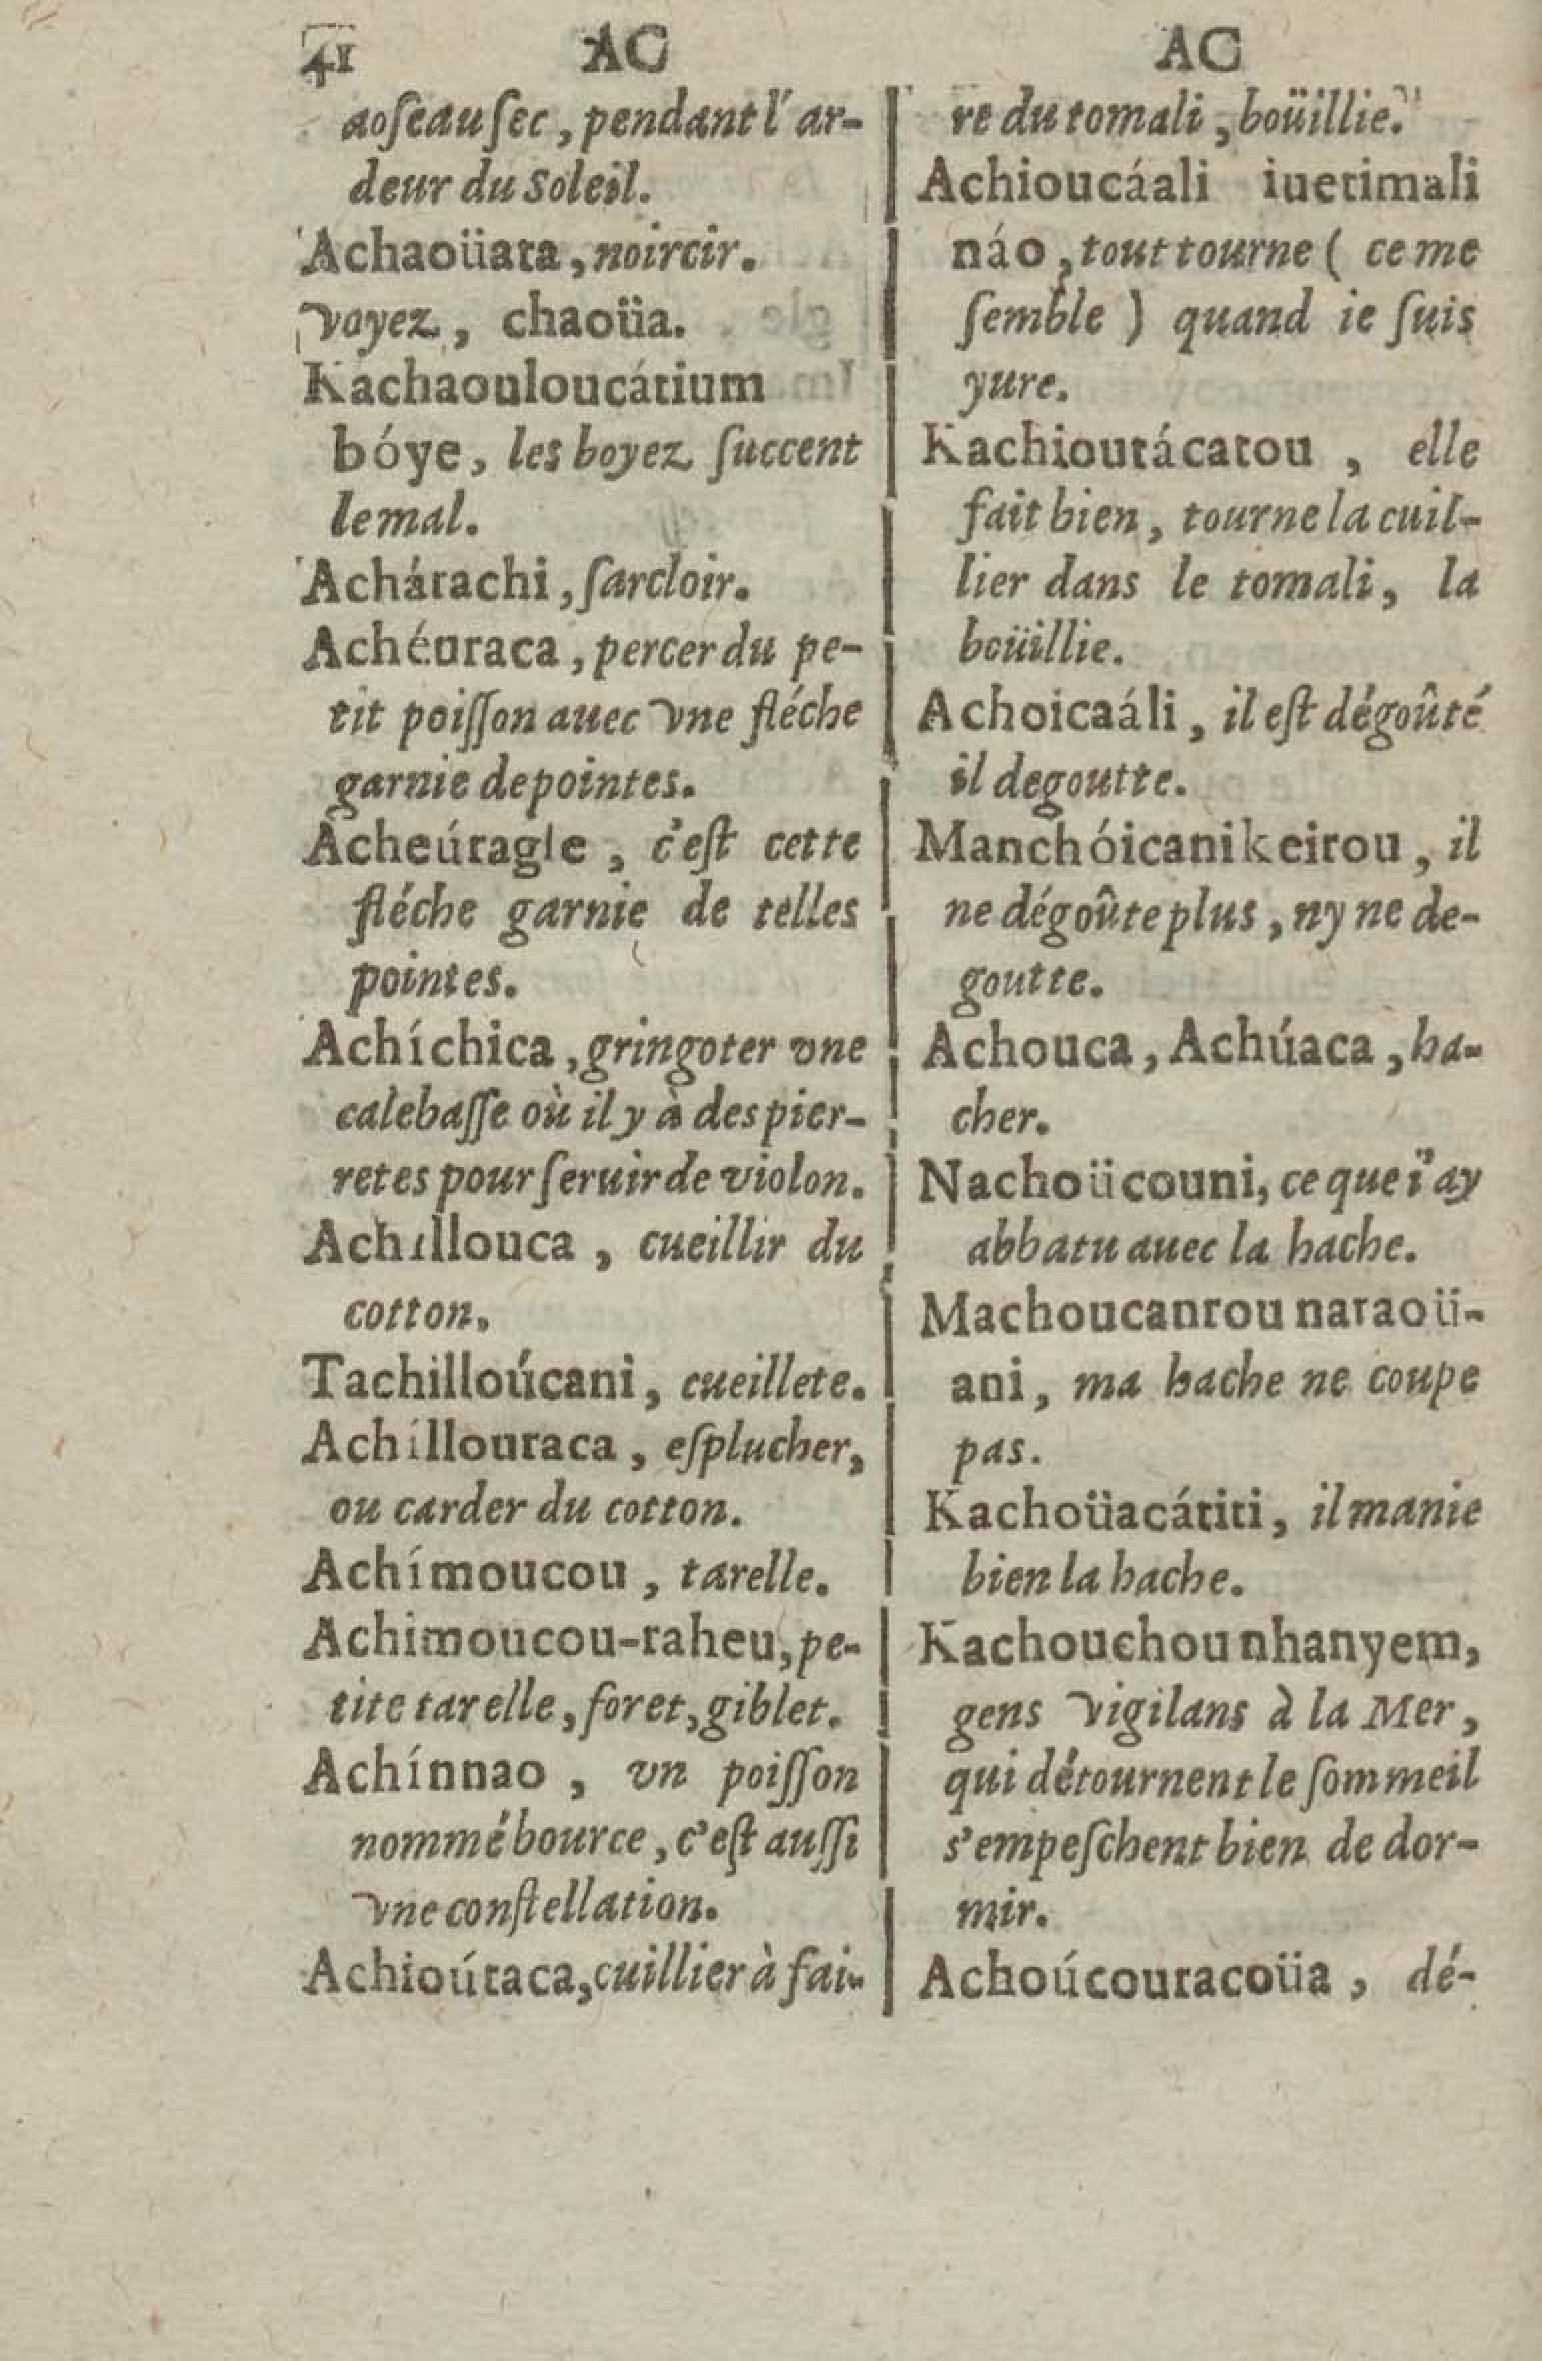 41 AC AC
aoſeau ſec, pendant l'ar-
deur du Soleil.
Achaoüata, noircir.
voyez, chaoüa.
Kachaouloucátium
bóye, les boyez ſuccent
le mal.
Achárachi, ſarcloir.
Achéuraca, percer du pe-
tit poiſſon auec vne fléche
garnie de pointes.
Acheúragle, c'eſt cette
fléche garnie de telles
pointes.
Achíchica, gringoter vne
calebaſſe où il y à des pier-
retes pour ſeruir de violon.
Achíllouca, cueillir du
cotton.
Tachilloúcani, cueillete.
Achíllouraca, eſplucher,
ou carder du cotton.
Achímoucou, tarelle.
Achimoucou-raheu, pe-
tite tarelle, foret, giblet.
Achínnao, vn poiſſon
nommé bource, c'eſt auſſi
vne conſtellation.
Achioútaca, cuillier à fai-
re du tomali, boüillie.
Achioucáali iuetimali
náo, tout tourne ( ce me
ſemble ) quand ie ſuis
yure.
Kachioutácatou, elle
fait bien, tourne la cuil-
lier dans le tomali, la
boüillie.
Achoicaáli, il eſt dégoûté
il degoutte.
Manchóicanikeirou, il
ne dégoûte plus, ny ne de-
goutte.
Achouca, Achúaca, ha-
cher.
Nachoücouni, ce que i'ay
abbatu auec la hache.
Machoucanrou naraoü-
ani, ma hache ne coupe
pas.
Kachoüacátiti, il manie
bien la hache.
Kachouchounhanyem,
gens vigilans à la Mer,
qui détournent le ſommeil
s'empeſchent bien de dor-
mir.
Achoúcouracoüa, dé-